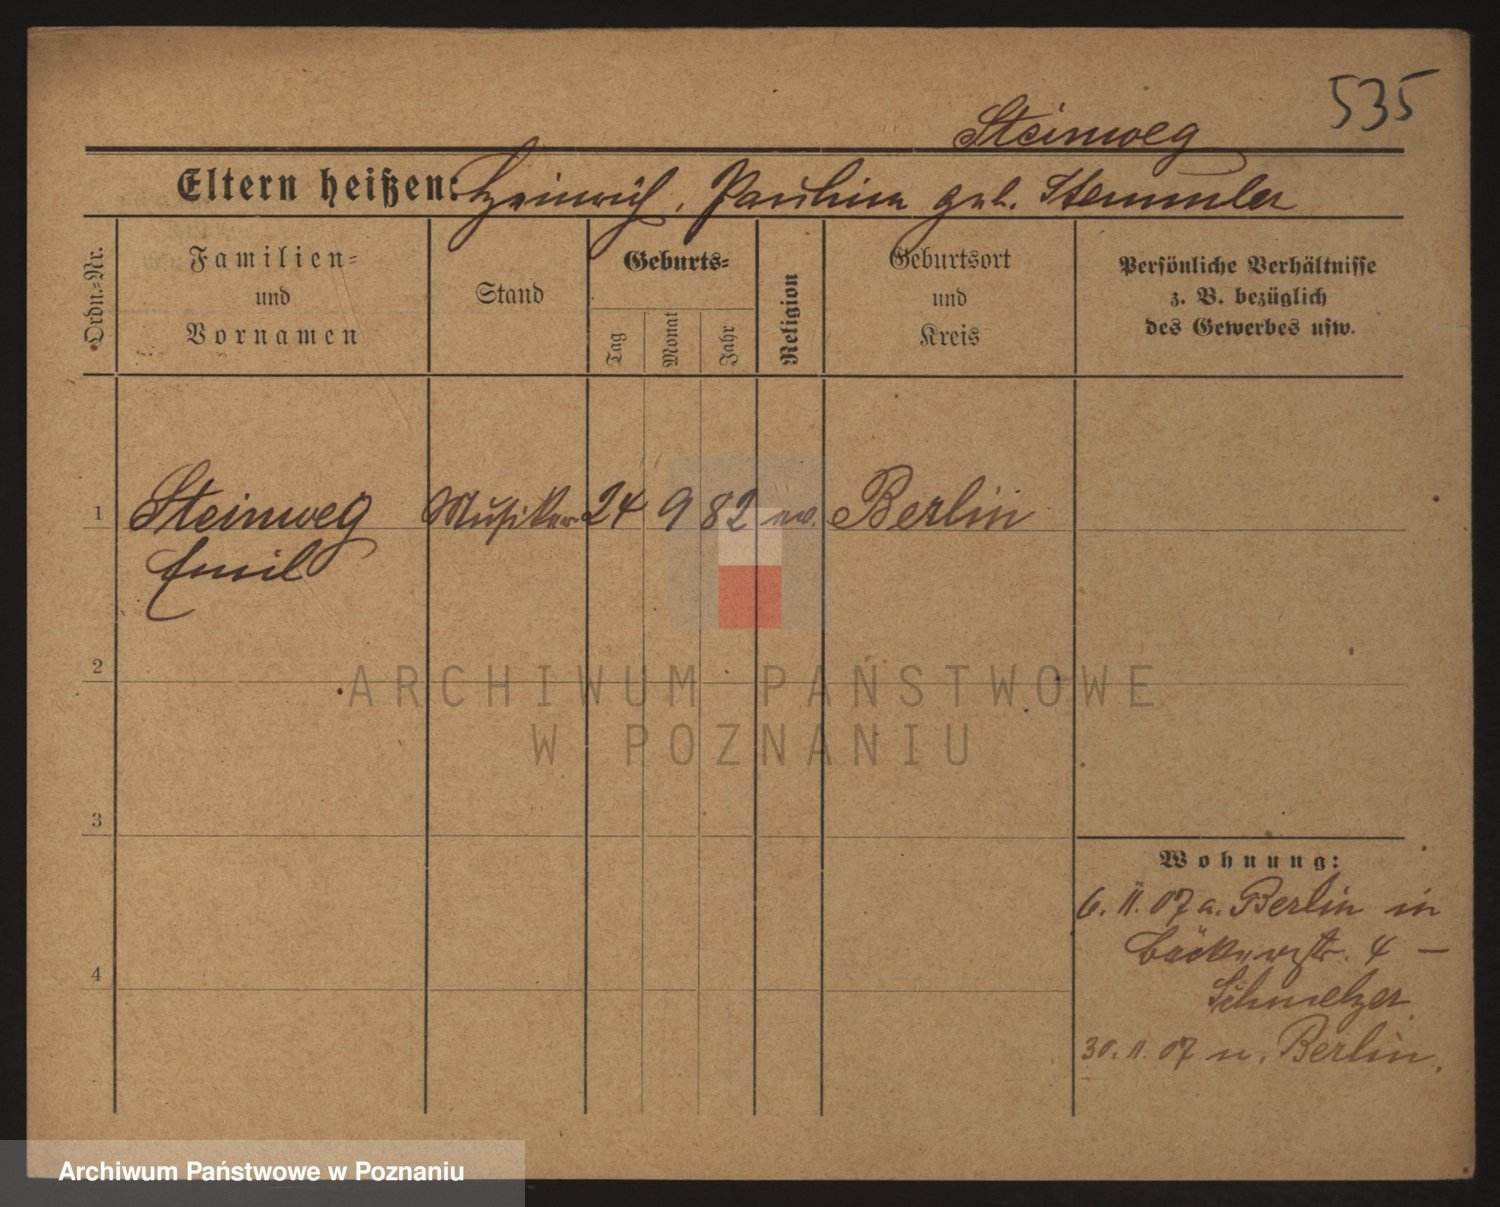 535
Steinweg
Eltern heißen: Heinrich, Paulina geb. Stemmler
Ordn.-Nr.
Familien-
und
Vornamen
Stand
Geburts-
Tag
Monat
Jahr
Religion
Geburtsort
und
Kreis
Persönliche Verhältnisse
z. B. bezüglich
des Gewerbes usw.
1 Steinweg Musiker 24 9 82 ev. Berlin
Emil
2
3
4
Wohnung:
6. 11. 07 a. Berlin in
Bäckerstr. 4 –
Schmelzer
30. 11. 07 n. Berlin.
ARCHIWUM PAŃSTWOWE
W POZNANIU
Archiwum Państwowe w Poznaniu